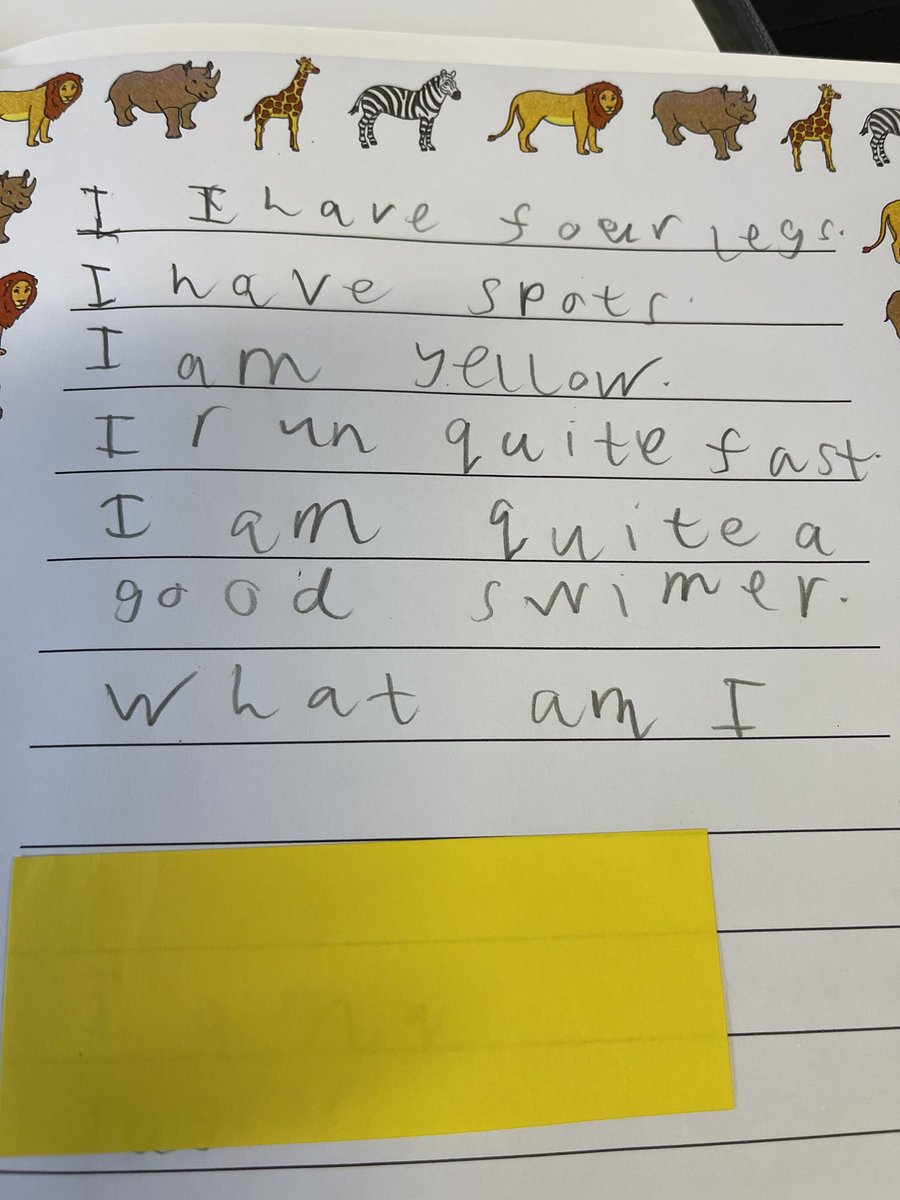 I I have foeur legs.
I have spots.
I am yellow.
I run quite fast.
I am quite a
good swimer.
What am I